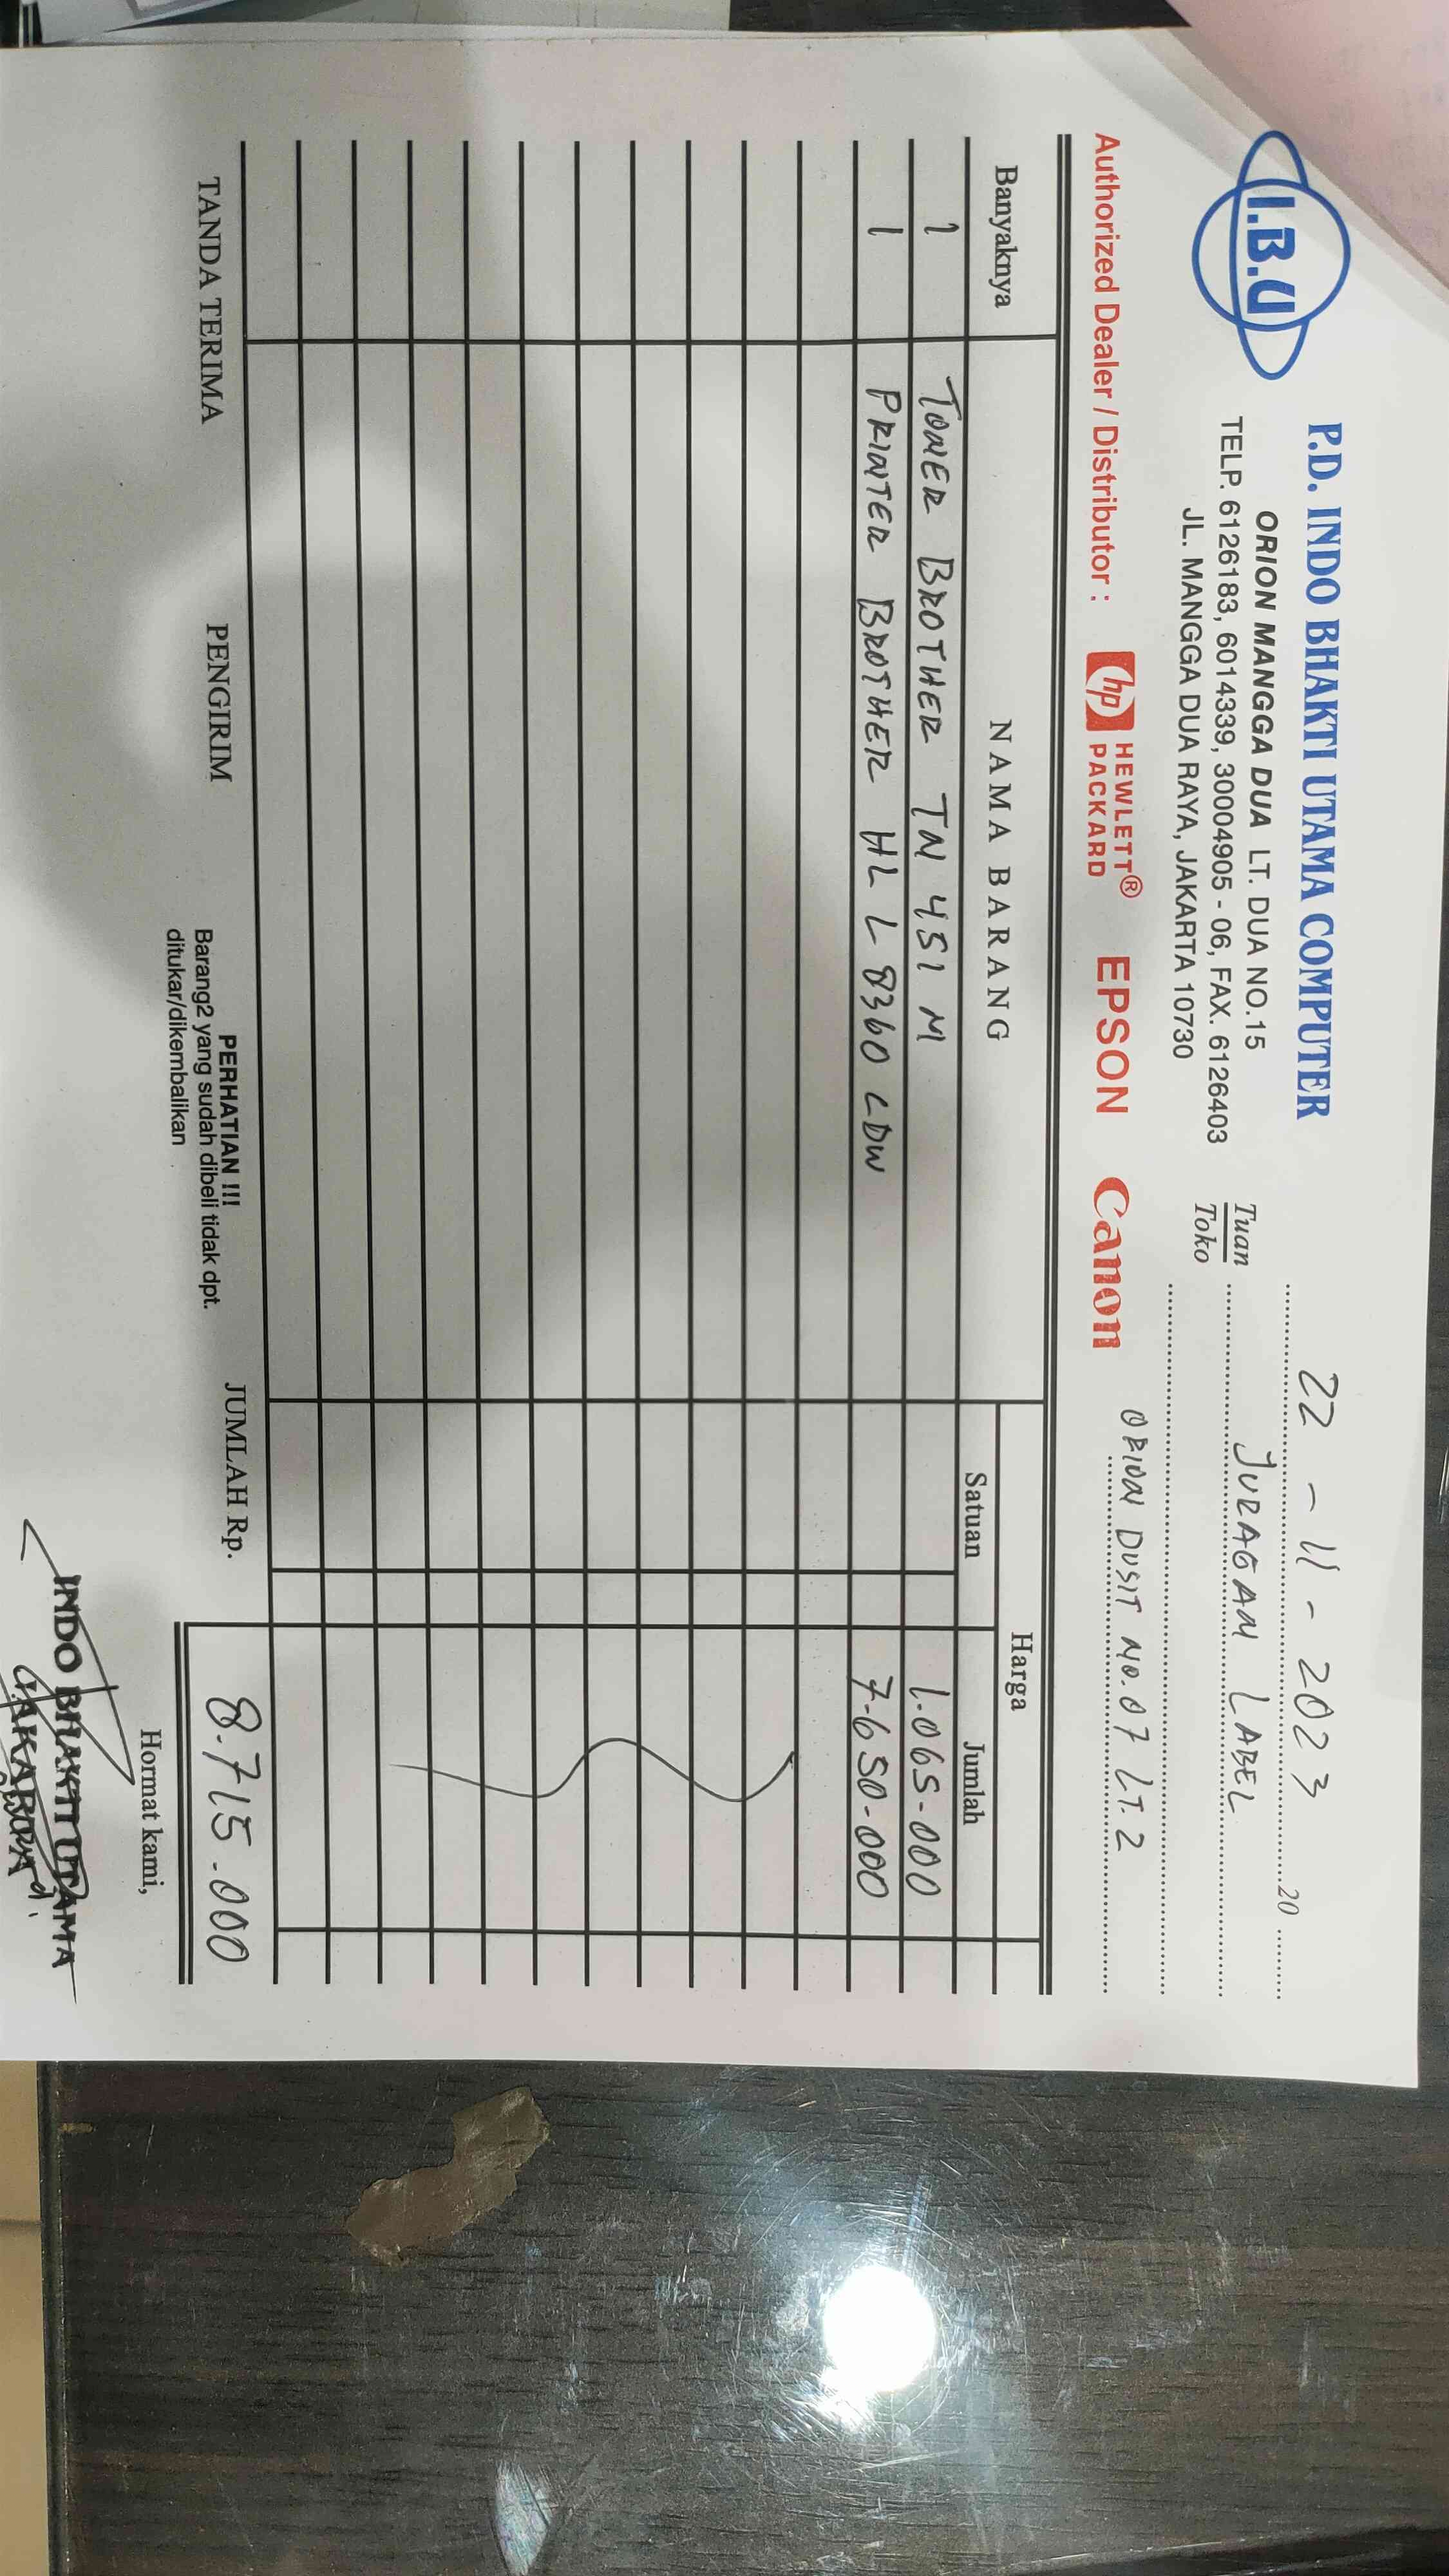 I.B.U
P.D. INDO BHAKTI UTAMA COMPUTER
ORION MANGGA DUA LT. DUA NO.15
TELP. 6126183, 6014339, 30004905 - 06, FAX. 6126403
JL. MANGGA DUA RAYA, JAKARTA 10730
22 - 11 - 2023 20
Tuan
Toko
JURAGAN LABEL
ORION DUSIT NO.07 LT.2
Authorized Dealer / Distributor : hp HEWLETT® PACKARD EPSON Canon
Banyaknya NAMA BARANG Harga
Satuan Jumlah
1 TONER BROTHER TN 451 M 1.065.000
1 PRINTER BROTHER HL L 8360 CDW 7.650.000
TANDA TERIMA PENGIRIM JUMLAH Rp. 8.715.000
PERHATIAN !!!
Barang2 yang sudah dibeli tidak dpt.
ditukar/dikembalikan
Hormat kami,
INDO BHAKTI UTAMA
JAKARTA